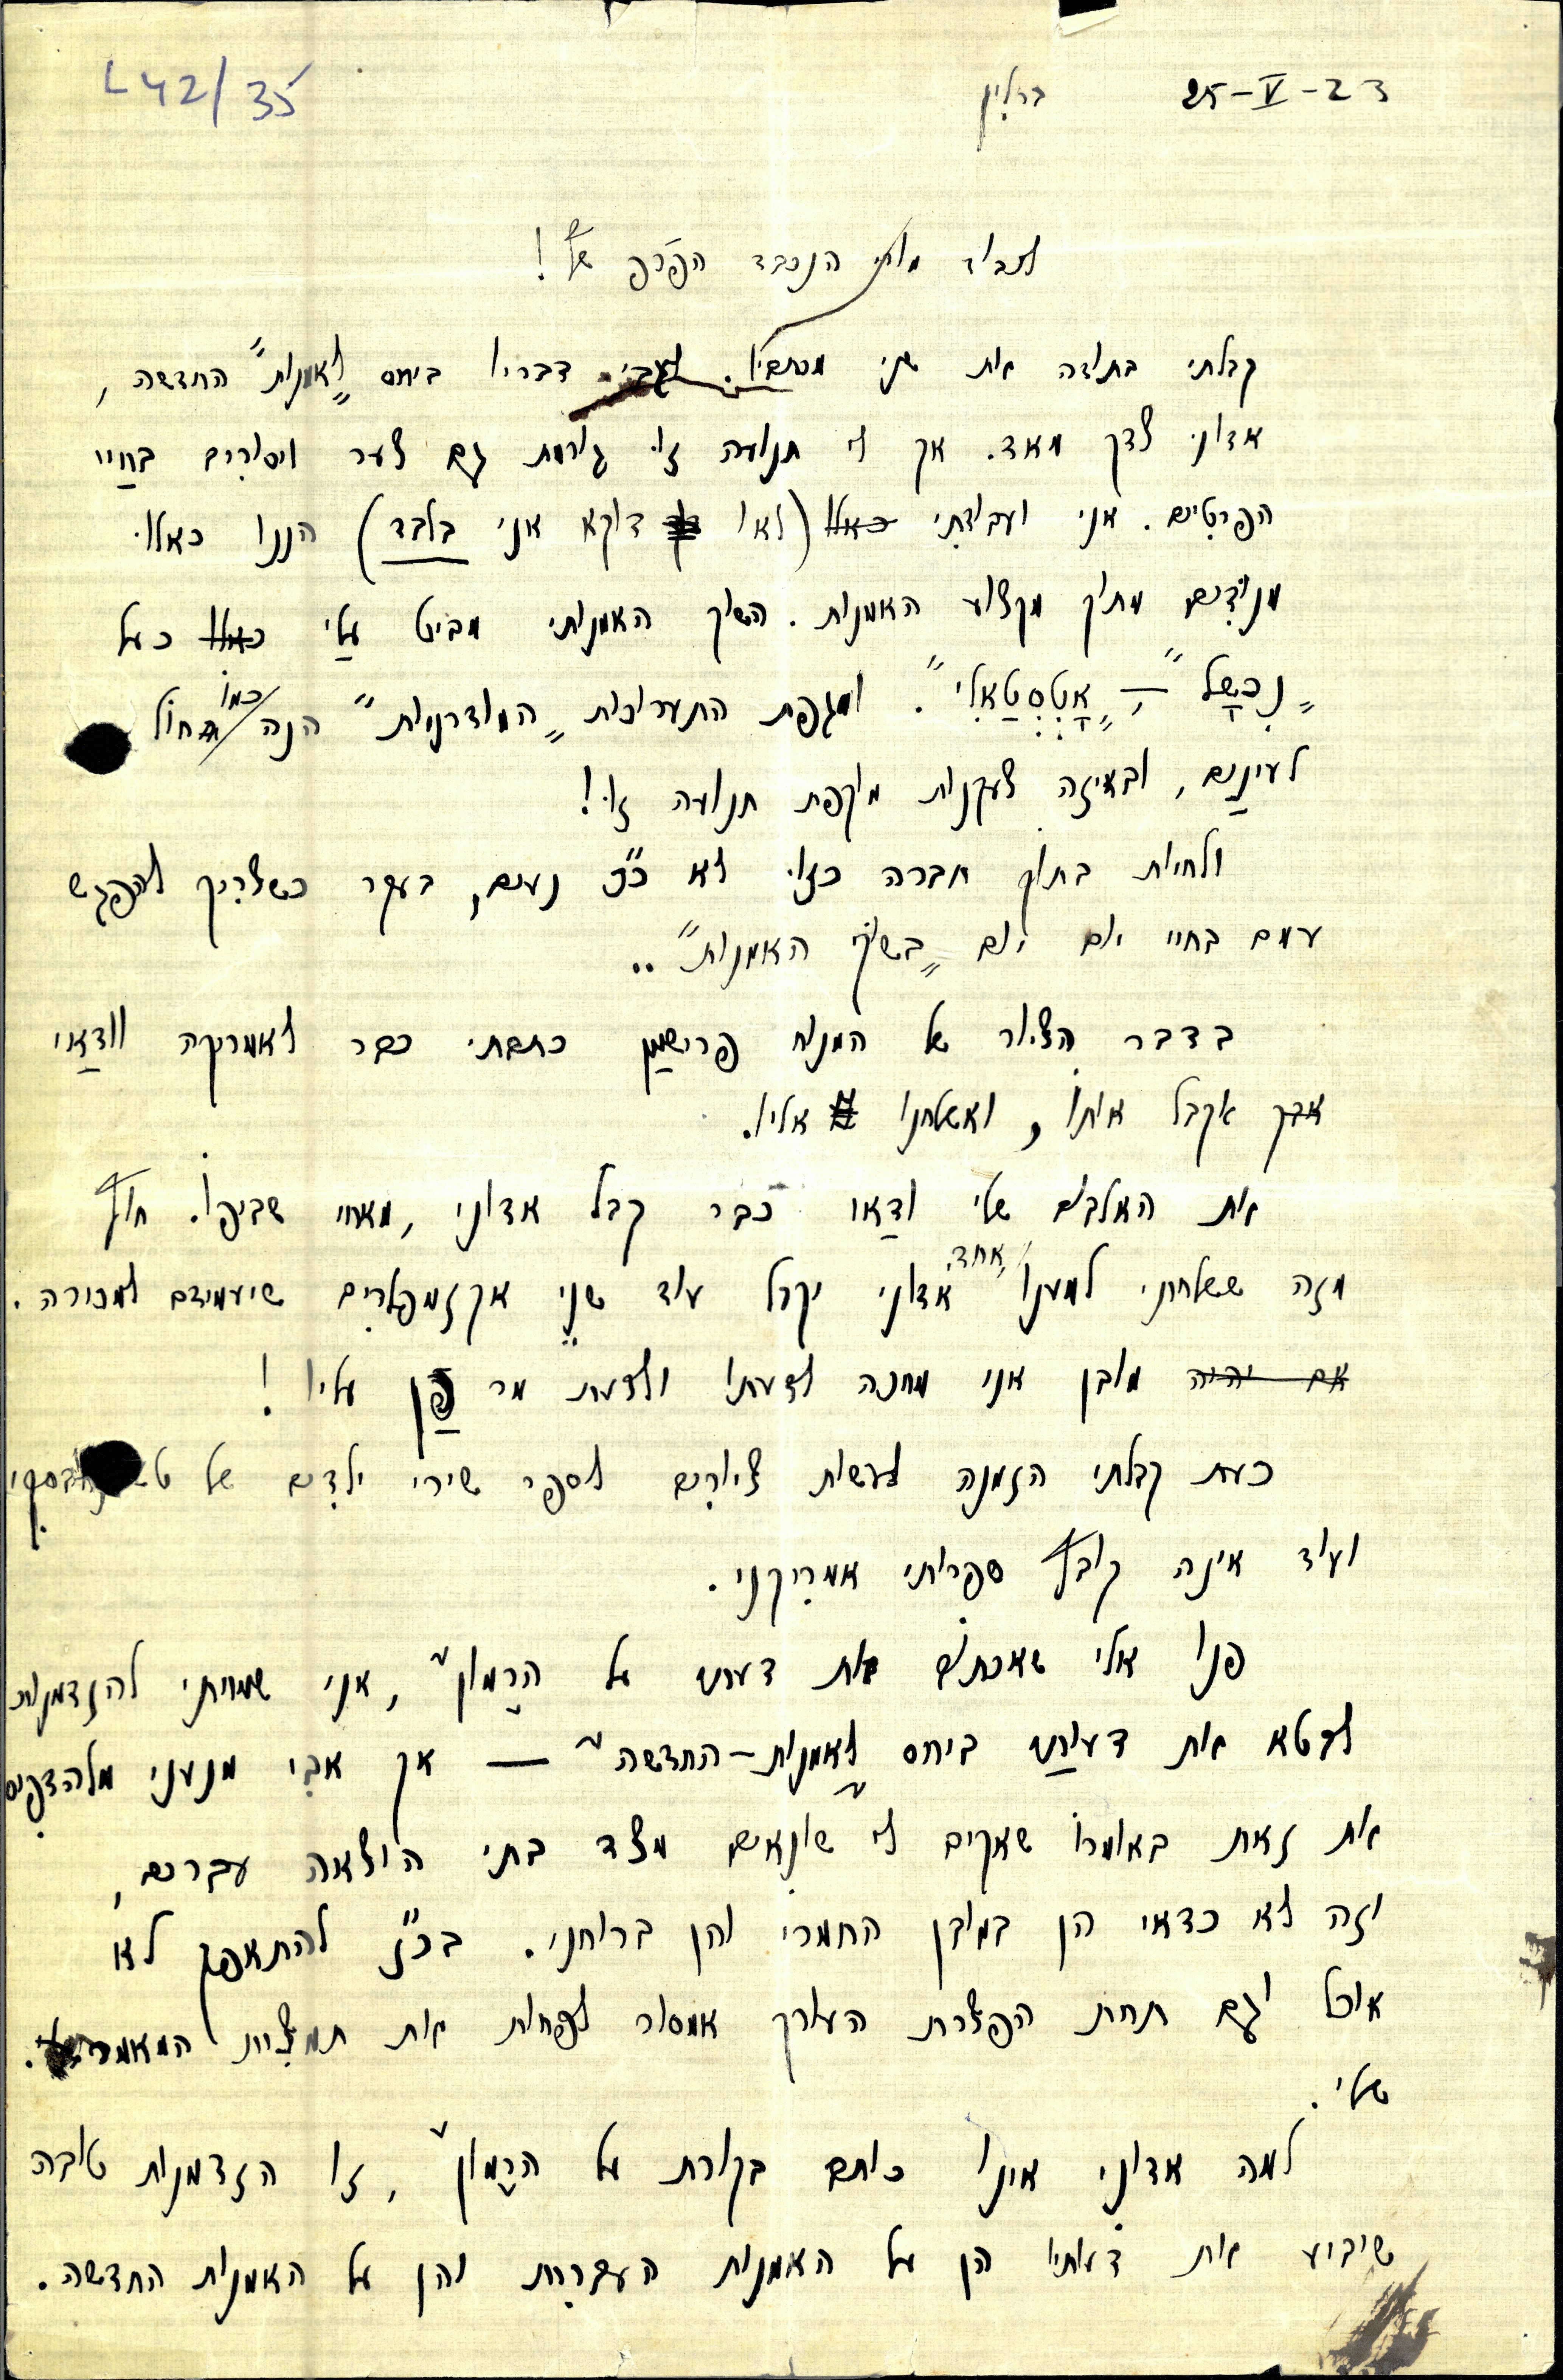 L42/35
25-V-23 ברלין
לכבוד מורי הנכבד הפרופ׳ שץ!
קבלתי בתודה את שני מכתביו. לגבי דבריו ביחס „לאמנות״ החדשה,
אדוני צדק מאד. אך לי תנועה זו גורמת גם צער ויסורים בחיי
הפרטים. אני ועבודתי כאלו (לאו דוקא אני בלבד) הננו כאלו
מנודים מתוך מקצוע האמנות. השוק האמנותי מביט עלי כאלו כעל
„נכשל״ — „אָטְסְטַאלִי״. ומגפת התערוכות „המודרניות״ הנה כמו חול
לעינים, ובאיזה צעקנות מוקפת תנועה זו!
ולחיות בתוך חברה כזו לא כ״כ נעים, בעקר כשצריך להפגש
עמם בחיי יום יום „בשוק האמנות״..
בדבר הציור של המנוח פרישמן כתבתי כבר לאמריקה וודאי
אקבל אותו, ואשלחנו אליו.
את האלבום שלי ודאי כבר קבל אדוני, מאחי שביפו. חוץ
מזה ששלחתי למענו אחד, אדוני יקבל עוד שני אקזמפלרים שיעמידם למכירה.
אם יהיה מובן אני מחכה לדעתו ולדעת מר פַּן עליו!
כעת קבלתי הזמנה לעשות ציורים לספר שירי ילדים של
ועוד אינה קובץ ספרותי אמריקני.
פנו אלי שאכתוב את דעתי על „הרמון״, אני שמחתי להזדמנות
לבטא את דעותי ביחס „לאמנות-החדשה״ — אך אבי מנעני מלהדפיס
את זאת באומרו שאקים לי שונאים מצד בתי הוצאה עברים,
וזה לא כדאי הן במובן החמרי והן ברוחני. בכ״ז להתאפק לא
אוכל וגם תחת הפצרת העורך אמסור לפחות את תמצית המאמר
שלי.
למה אדוני אינו כותב בקורת על „הרמון״, זו הזדמנות טובה
שיביע את דעותיו הן על האמנות העברית והן על האמנות החדשה.